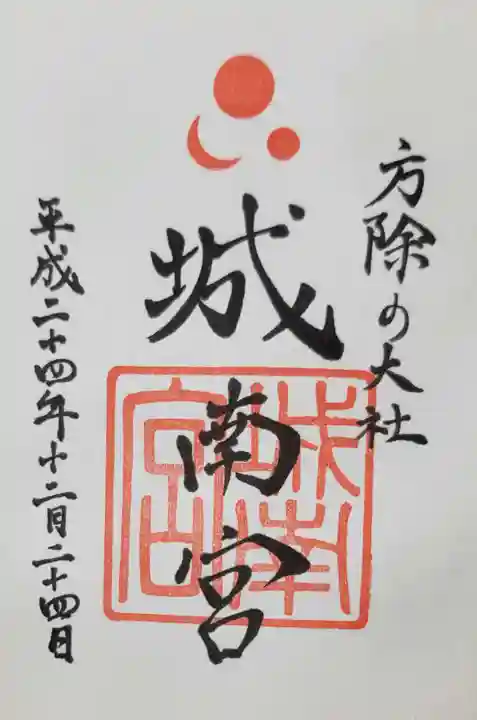 方除の大社
城南宮
城南宮
平成二十四年十二月二十四日